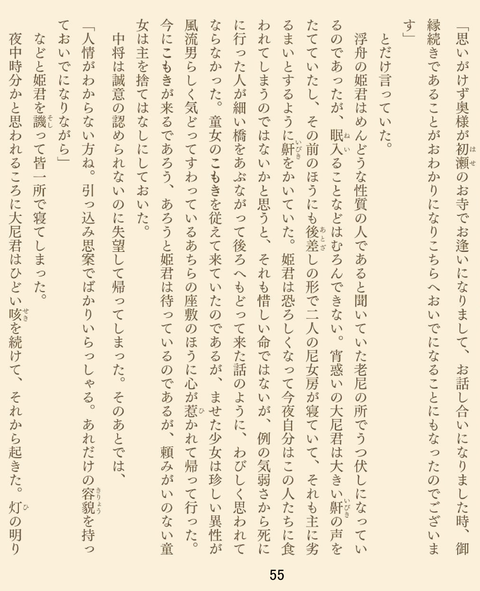 「思いがけず奥様が初瀬のお寺でお逢いになりまして、お話し合いになりました時、御
縁続きであることがおわかりになりこちらへおいでになることにもなったのでございま
す」
とだけ言っていた。
浮舟の姫君はめんどうな性質の人であると聞いていた老尼の所でうつ伏しになってい
るのであったが、眠入ることなどはむろんできない。宵惑いの大尼君は大きい鼾の声を
たてていたし、その前のほうにも後差しの形で二人の尼女房が寝ていて、それも主に劣
るまいとするように鼾をかいていた。姫君は恐ろしくなって今夜自分はこの人たちに食
われてしまうのではないかと思うと、それも惜しい命ではないが、例の気弱さから死に
に行った人が細い橋をあぶながって後ろへもどって来た話のように、わびしく思われて
ならなかった。童女のこもきを従えて来ていたのであるが、ませた少女は珍しい異性が
風流男らしく気どってすわっているあちらの座敷のほうに心が惹かれて帰って行った。
今にこもきが来るであろう、あろうと姫君は待っているのであるが、頼みがいのない童
女は主を捨てはなしにしておいた。
中将は誠意の認められないのに失望して帰ってしまった。そのあとでは、
「人情がわからない方ね。引っ込み思案でばかりいらっしゃる。あれだけの容貌を持っ
ておいでになりながら」
などと姫君を譏って皆一所で寝てしまった。
夜中時分かと思われるころに大尼君はひどい咳を続けて、それから起きた。灯の明り
55